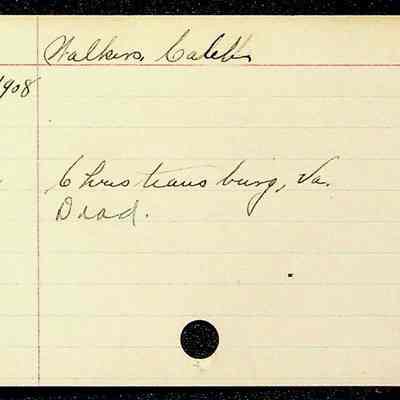 Walkers, Caleb
1908
Christiansburg, Va.
Dead.